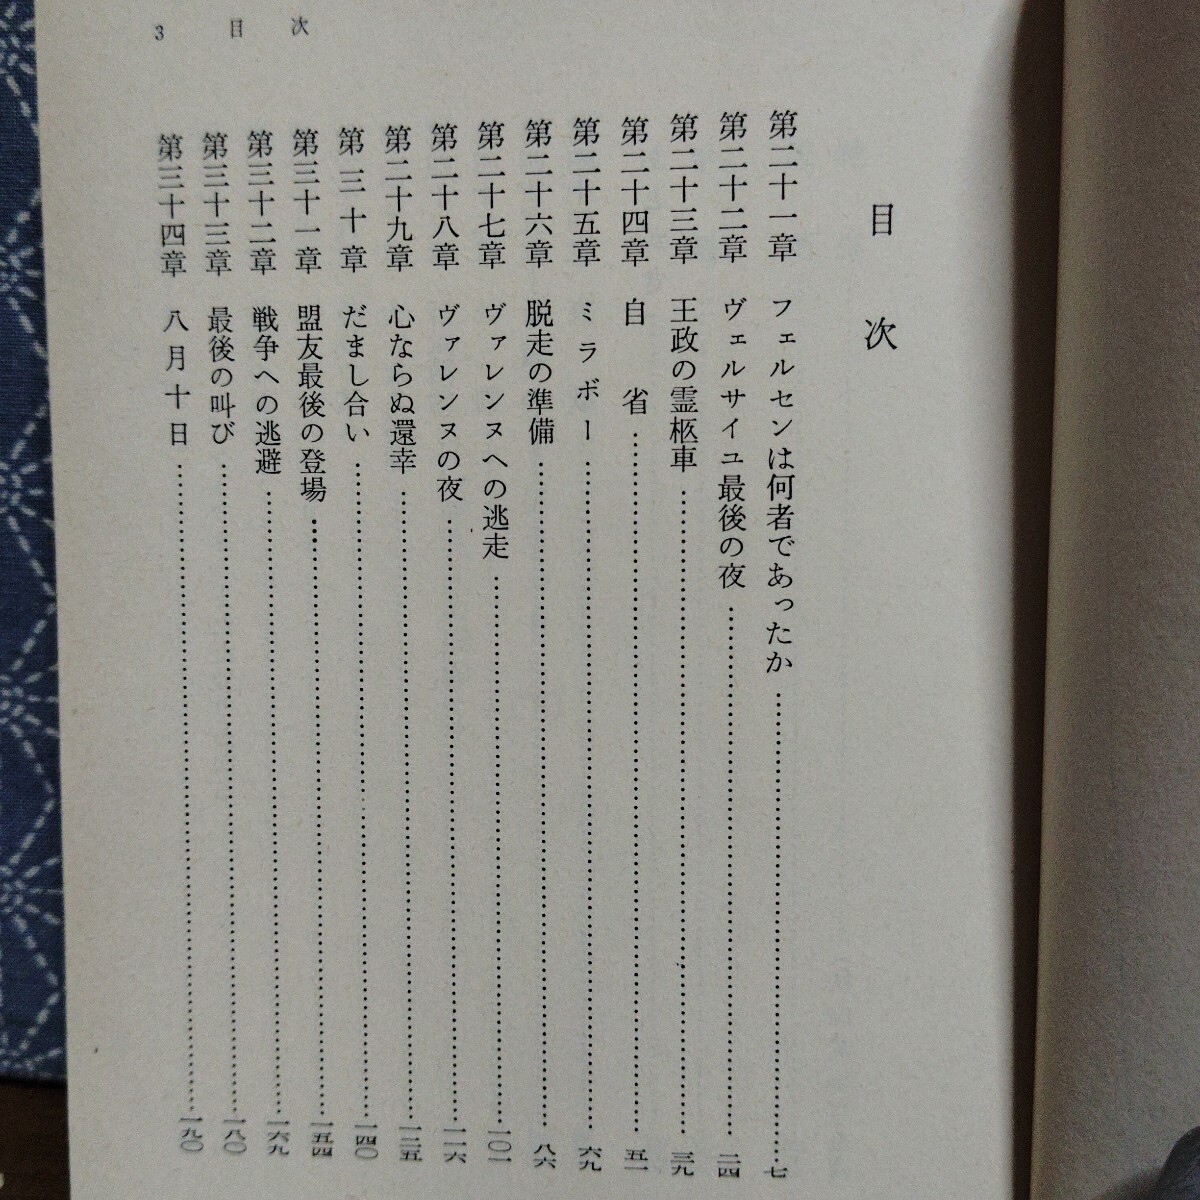 3 目次
目次
第二十一章 フェルセンは何者であったか……七
第二十二章 ヴェルサイユ最後の夜……二四
第二十三章 王政の霊柩車……三九
第二十四章 自省……五一
第二十五章 ミラボー……六九
第二十六章 脱走の準備……八六
第二十七章 ヴァレンヌへの逃走……一〇一
第二十八章 ヴァレンヌの夜……一一六
第二十九章 心ならぬ還幸……一二五
第三十章 だまし合い……一四〇
第三十一章 盟友最後の登場……一五四
第三十二章 戦争への逃避……一六九
第三十三章 最後の叫び……一八〇
第三十四章 八月十日……一九〇